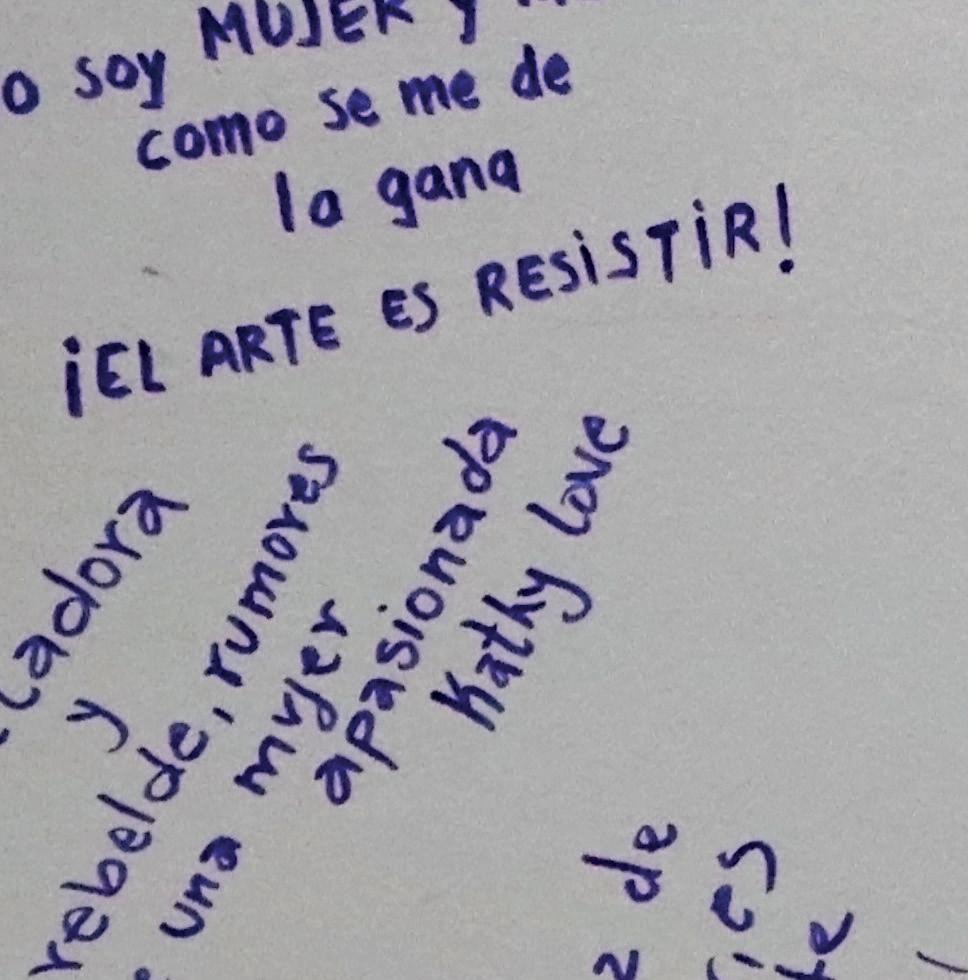 o soy MUJER y
como se me de
la gana
¡EL ARTE ES RESISTIR!
cadora
y
rebelde, rumores
una mujer
apasionada
Kathy Love
de